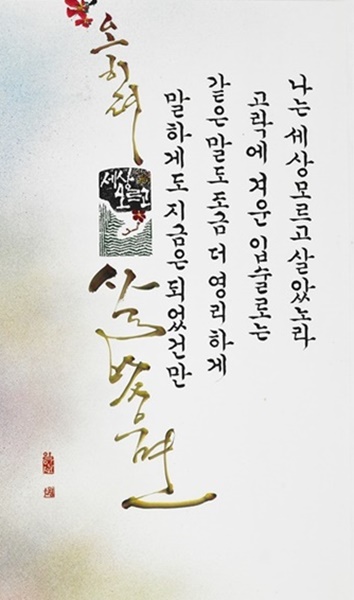 나는 세상모르고 살았노라
고락에 겨운 입술로는
같은 말도 조금 더 영리하게
말하게도 지금은 되었건만
오히려
세상
모르고
살았으면